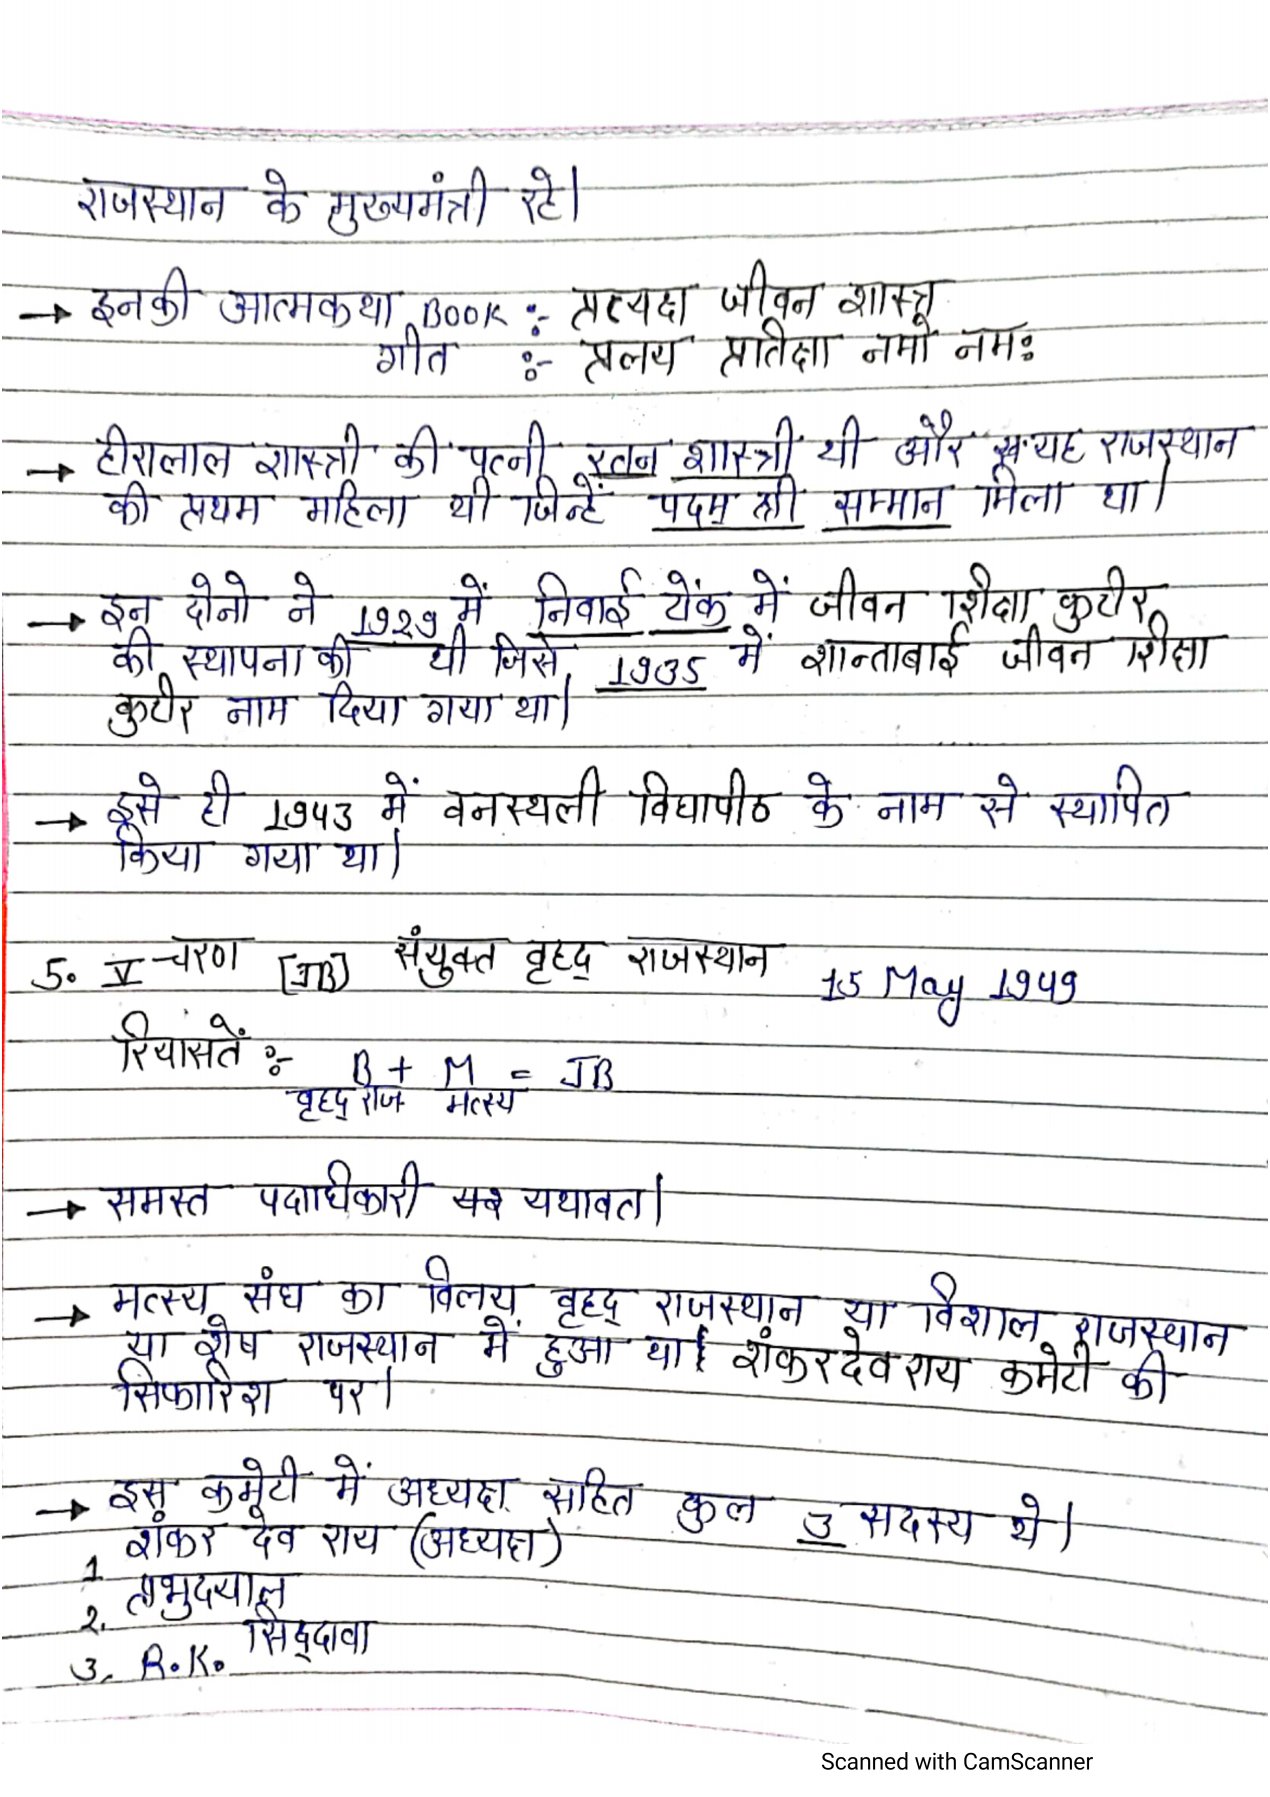 राजस्थान के मुख्यमंत्री रहे।
→ इनकी आत्मकथा BOOK :- प्रत्यक्ष जीवन शास्त्र
गीत :- प्रलय प्रतिक्षा नमो नमः
→ हीरालाल शास्त्री की पत्नी रतन शास्त्री थी और यह राजस्थान
की प्रथम महिला थी जिन्हें पदम श्री सम्मान मिला था।
→ इन दोनो ने 1929 में निवाई टोंक में जीवन शिक्षा कुटीर
की स्थापना की थी जिसे 1935 में शान्ताबाई जीवन शिक्षा
कुटीर नाम दिया गया था।
→ इसे ही 1943 में वनस्थली विद्यापीठ के नाम से स्थापित
किया गया था।
5. V चरण [JB] संयुक्त वृहद् राजस्थान 15 May 1949
रियासतें :- B + M = JB
वृहद् राज. मत्स्य
→ समस्त पदाधिकारी यथावत।
→ मत्स्य संघ का विलय वृहद् राजस्थान या विशाल राजस्थान
या शेष राजस्थान में हुआ था। शंकरदेव राय कमेटी की
सिफारिश पर।
→ इस कमेटी में अध्यक्ष सहित कुल 3 सदस्य थे।
1 शंकर देव राय (अध्यक्ष)
2. प्रभुदयाल
3. R.K. सिद्दावा
Scanned with CamScanner